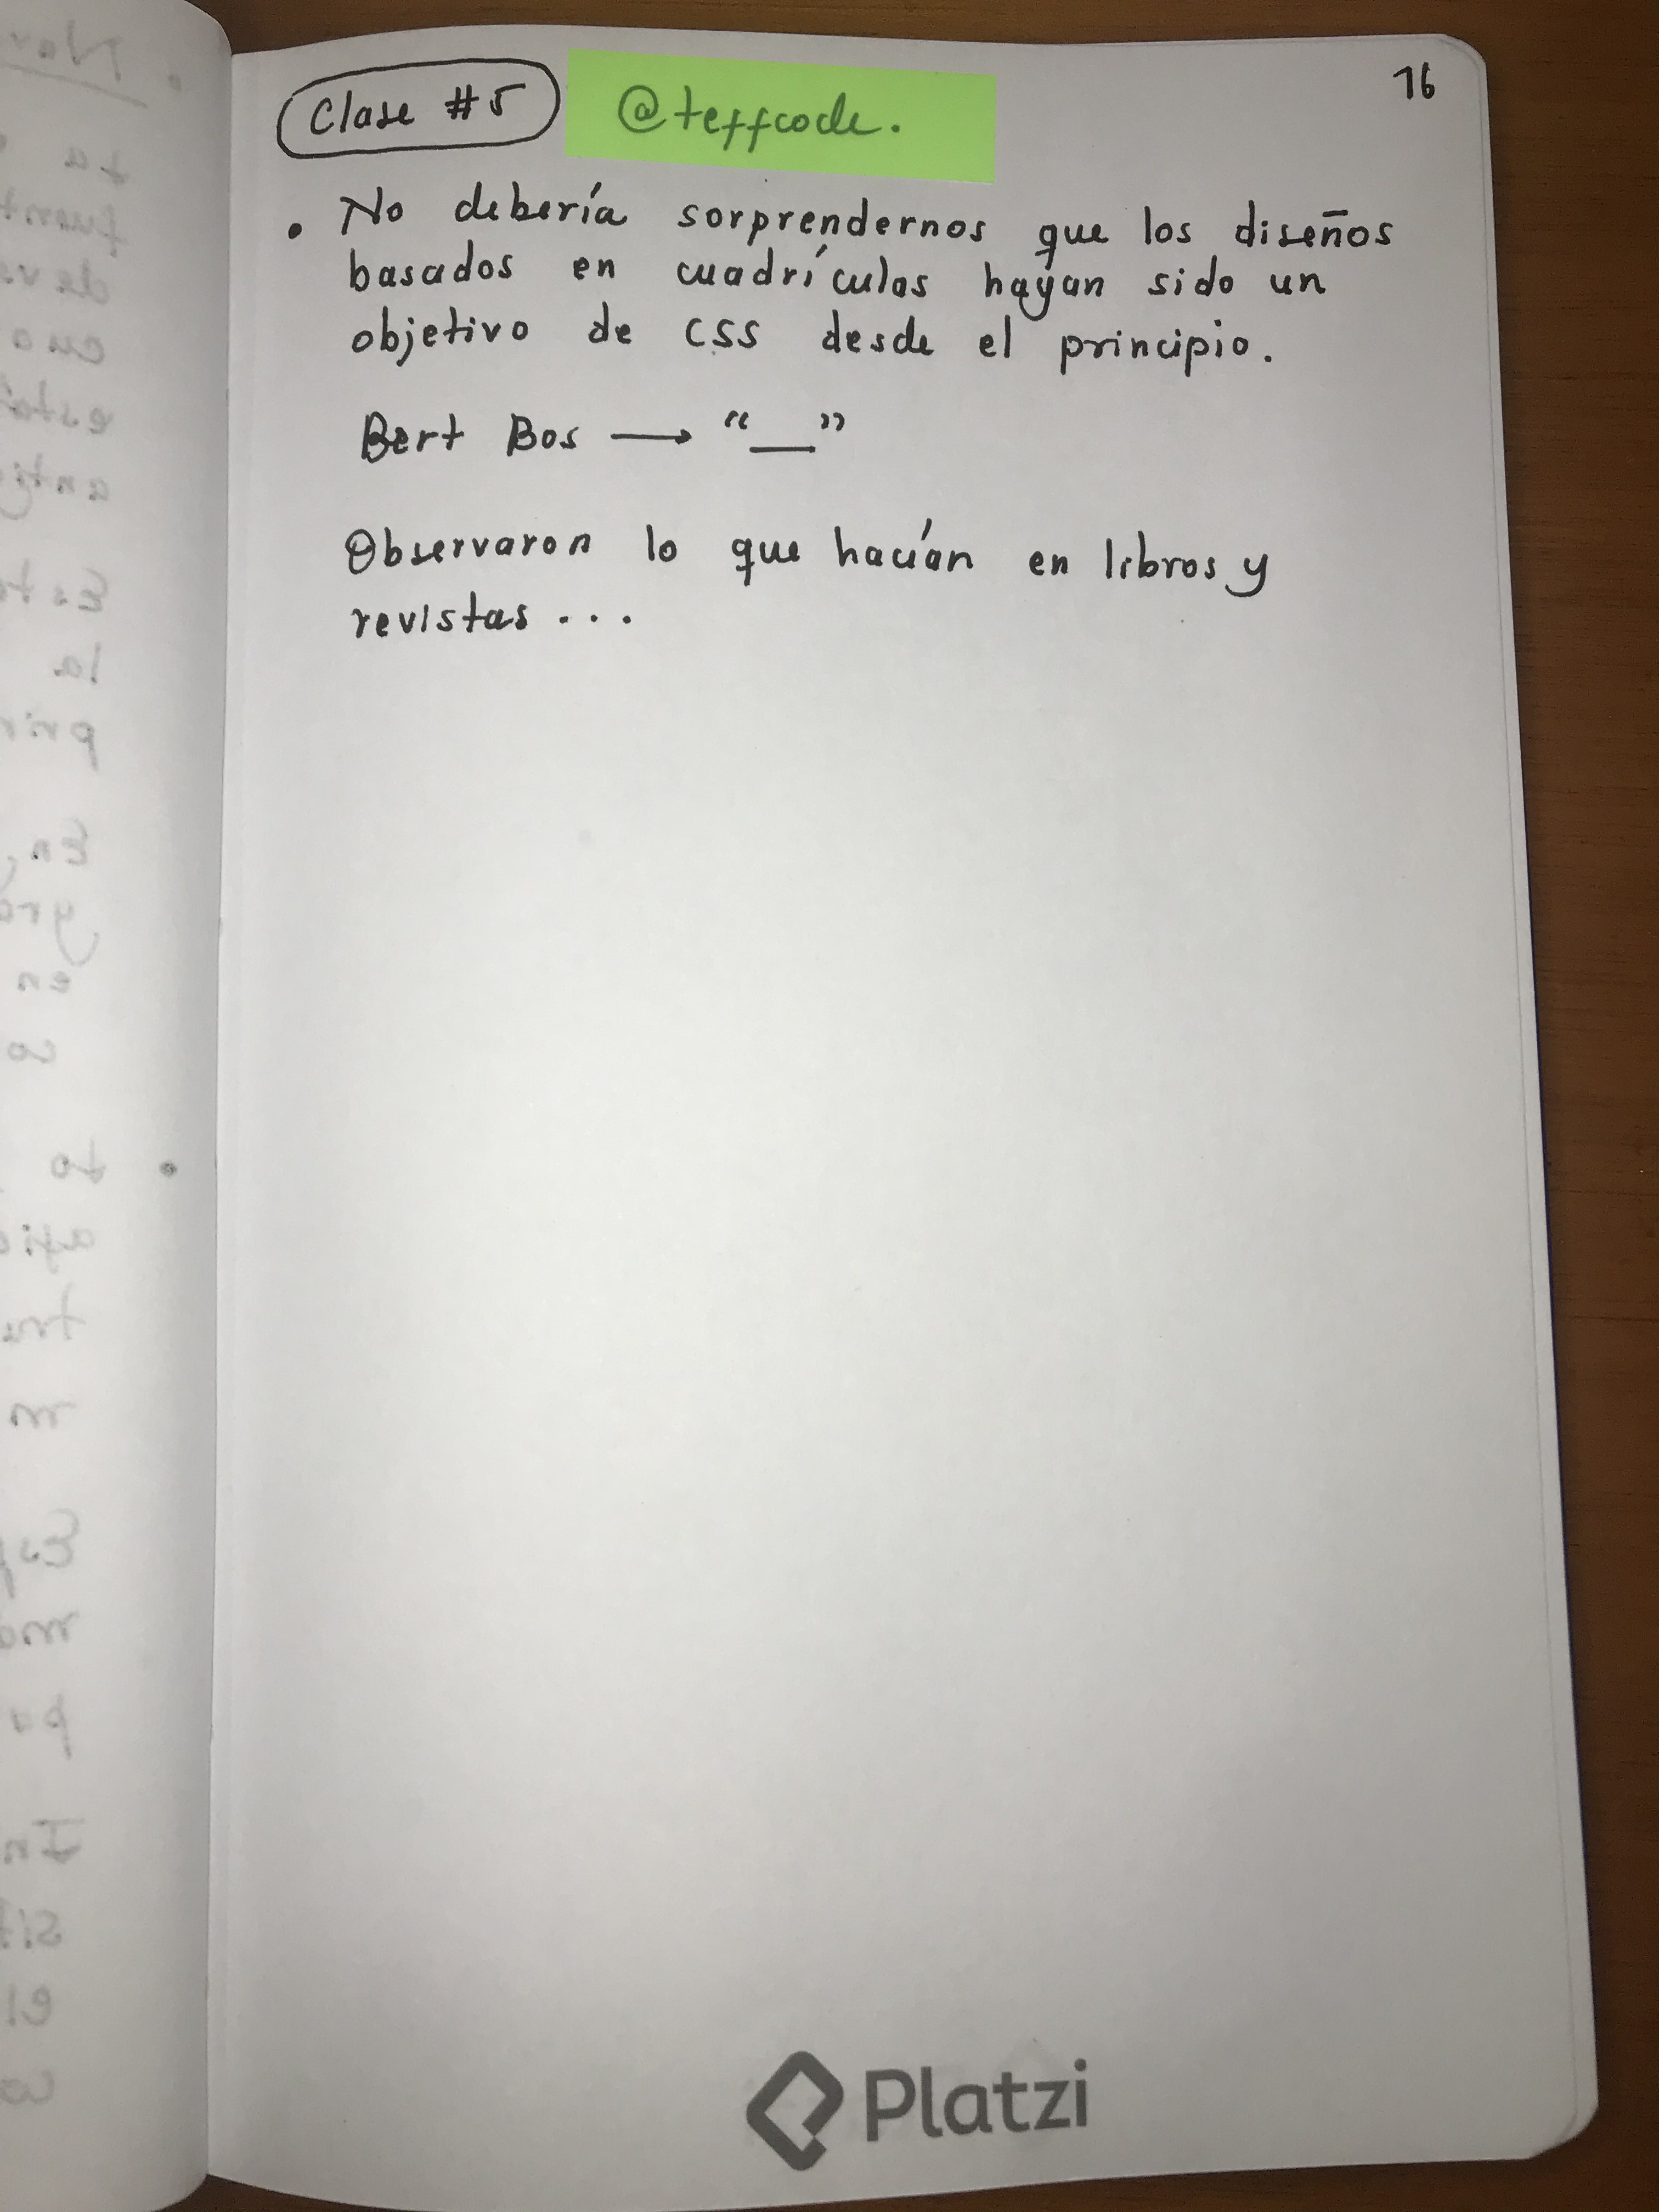 Clase #5 @teffcode. 16
• No debería sorprendernos que los diseños
basados en cuadrículas hayan sido un
objetivo de CSS desde el principio.
Bert Bos → “__”
Observaron lo que hacían en libros y
revistas ...
Platzi